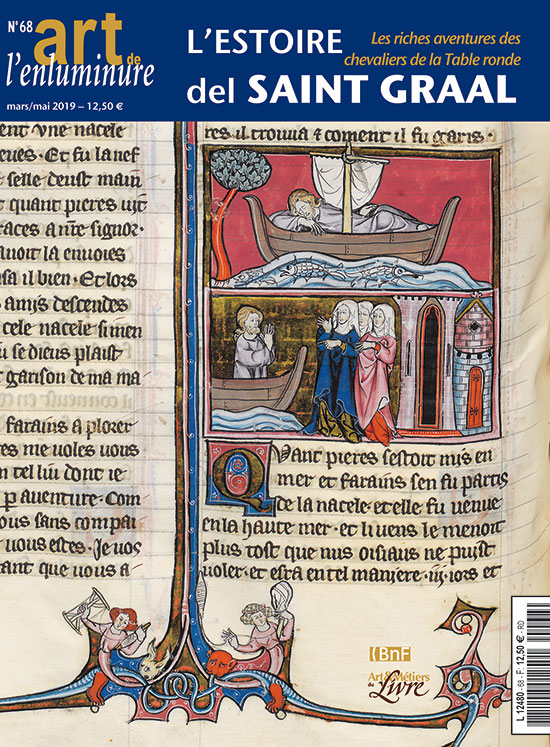 N°68
art de
l'enluminure
mars/mai 2019 – 12,50 €
L'ESTOIRE
del SAINT GRAAL
Les riches aventures des
chevaliers de la Table ronde
ent vne nacele
Et fu la nef
selle deust main
quant pieres uit
graces a nre signor·
auoit la enuoies
sa il bien· Et lors
amis descendes
cele nacele si men
se dieus plaist
garison de ma ma
farains a plorer
res me voles vous
en tel liu dont ie
p auenture· Com
ous sans compai
vous estes· Je vos
tant que vous a
res il trouua ⁊ coment il fu garis·
Qvant pieres sestoit mis en
mer et farains sen fu partis
de la nacele et elle fu venue
en la haute mer· et li vens le menoit
plus tost que nus oisiaus ne puist
voler· et esta en tel maniere· iiij· iors et
BnF
Art & Métiers
du Livre
L 12480 - 68 - F: 12,50 € - RD